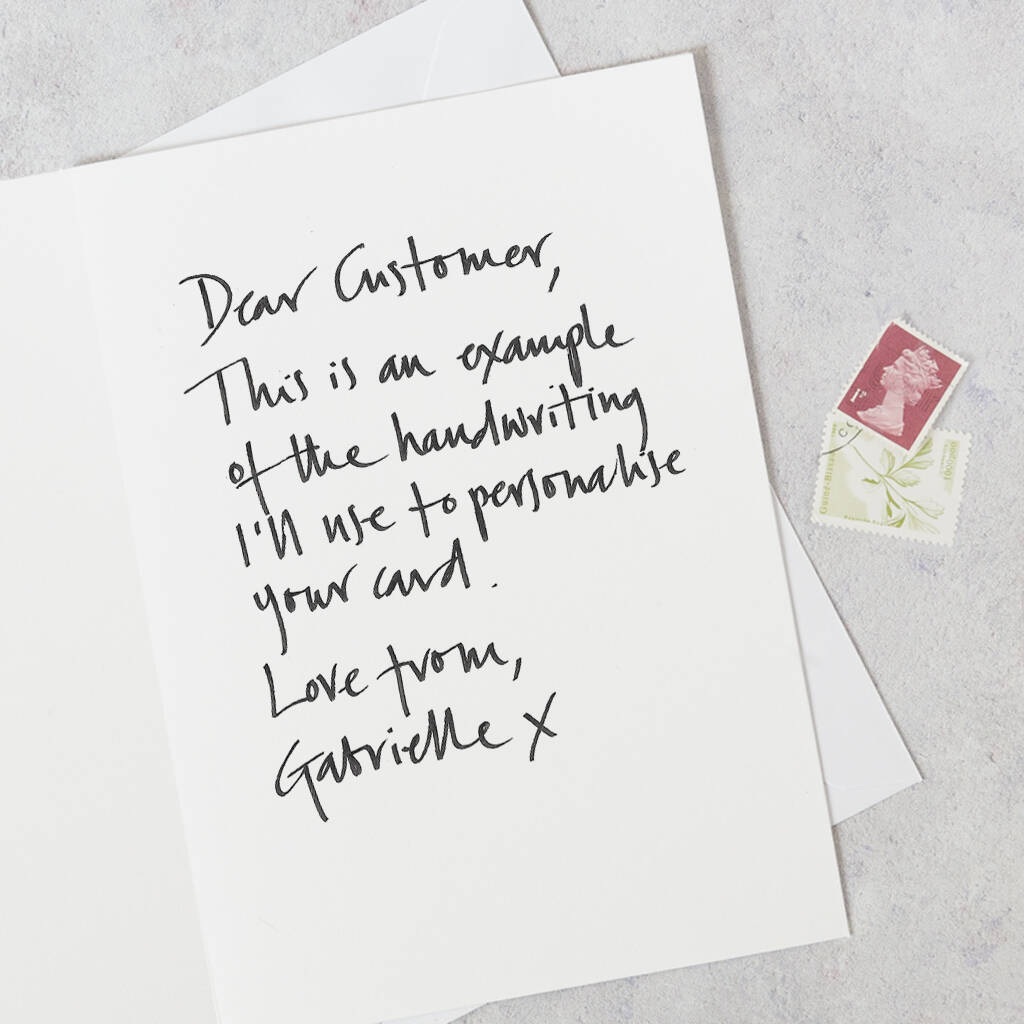 Dear Customer,
This is an example
of the handwriting
I'll use to personalise
your card.
Love from,
Gabrielle X
1P